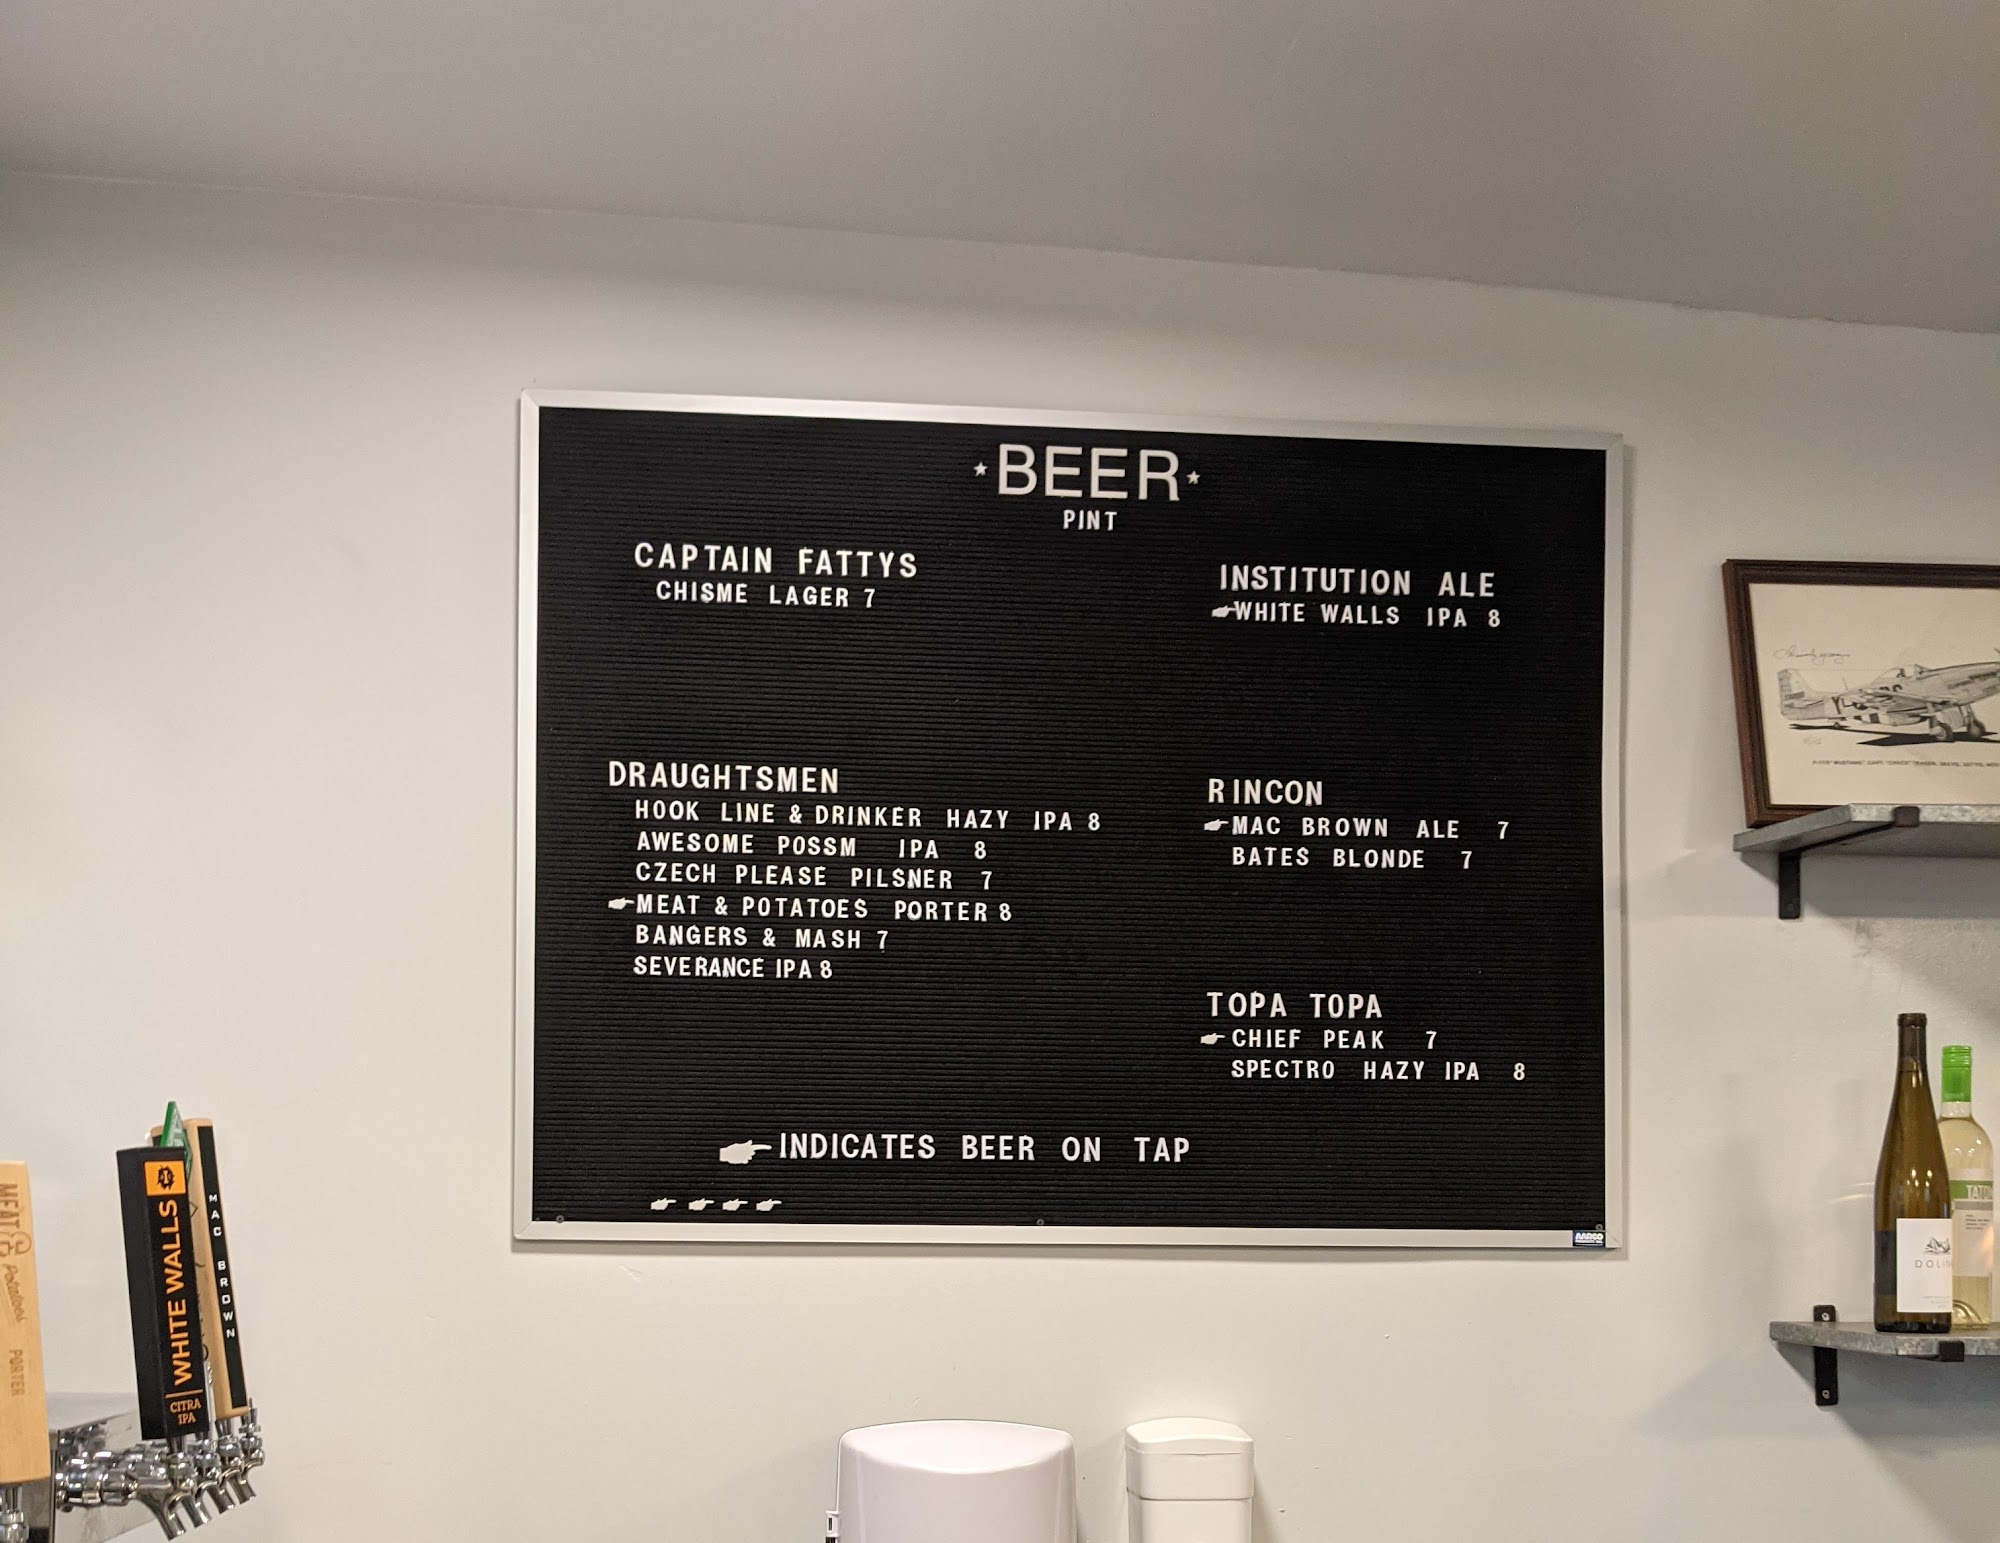 BEER
PINT
CAPTAIN FATTYS
CHISME LAGER 7
INSTITUTION ALE
WHITE WALLS IPA 8
DRAUGHTSMEN
HOOK LINE & DRINKER HAZY IPA 8
AWESOME POSSM IPA 8
CZECH PLEASE PILSNER 7
MEAT & POTATOES PORTER 8
BANGERS & MASH 7
SEVERANCE IPA 8
RINCON
MAC BROWN ALE 7
BATES BLONDE 7
TOPA TOPA
CHIEF PEAK 7
SPECTRO HAZY IPA 8
INDICATES BEER ON TAP
AARCO
MEAT & Potatoes
PORTER
WHITE WALLS
CITRA
IPA
MAC BROWN